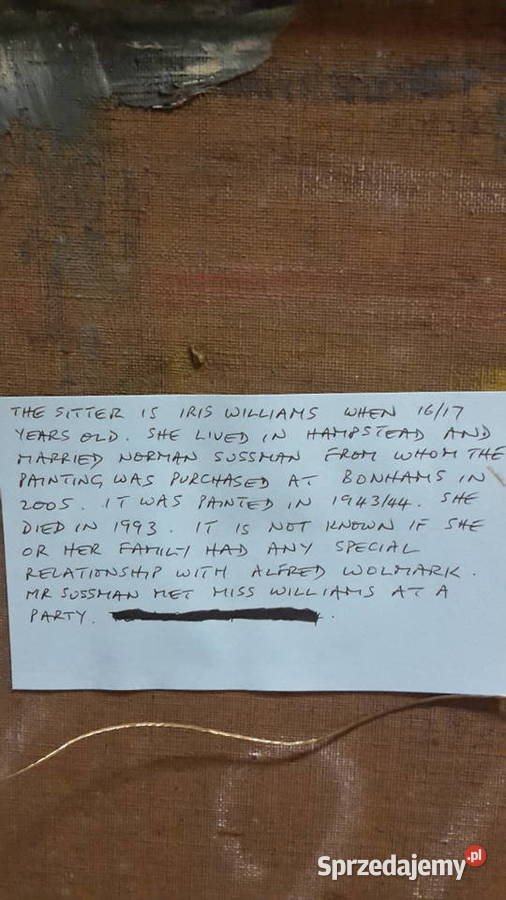 THE SITTER IS IRIS WILLIAMS WHEN 16/17
YEARS OLD. SHE LIVED IN HAMPSTEAD AND
MARRIED NORMAN SUSSMAN FROM WHOM THE
PAINTING WAS PURCHASED AT BONHAMS IN
2005. IT WAS PAINTED IN 1943/44. SHE
DIED IN 1993. IT IS NOT KNOWN IF SHE
OR HER FAMILY HAD ANY SPECIAL
RELATIONSHIP WITH ALFRED WOLMARK.
MR SUSSMAN MET MISS WILLIAMS AT A
PARTY.
Sprzedajemy.pl